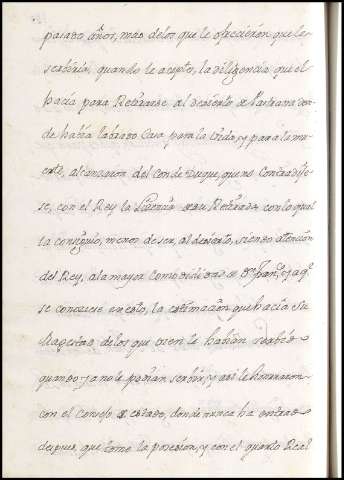 pasado años, mas de los que le ofrecieron que le
serbiria, quando le acepto, la diligencia que el
hacia para Retirarse al desierto de Pastrana don-
de habia labrado Casa para la vida, y para la mu-
erte, al cansacion del Conde Duque, que no Contradije-
se, con el Rey la licencia de su Retirada, con lo qual
la consiguio, menos de ser, al desierto, siendo atencion
del Rey, a la mayor Comodidad de Dn Juan, y a q.e
se conociese en esto, la estimacion que hacia Su
Magestad de los que bien le habian serbido
quando ya no le podian serbir, y asi le honraron
con el Consejo de estado, donde nunca ha entrado
despues, que tomo la posesion, y con el quarto Real